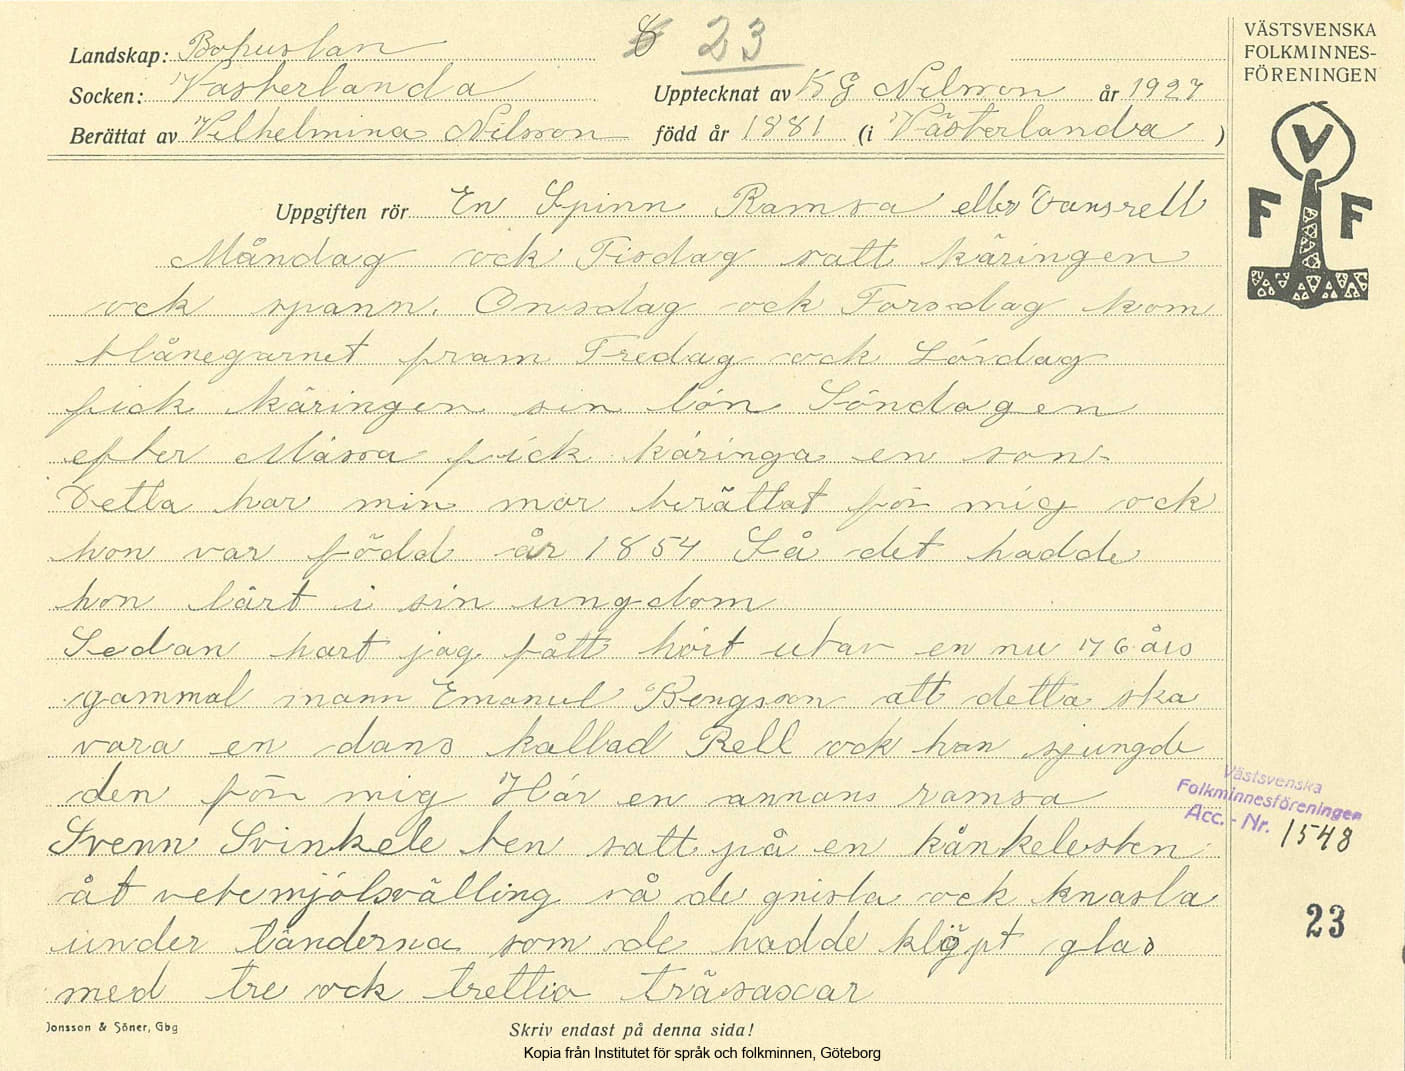 Landskap: Bohuslan
8 23
Socken: Västerlanda
Upptecknat av K G Nilsson år 1927
Berättat av Vilhelmina Nilsson född år 1881 (i Västerlanda )
Uppgiften rör En Spinn Ramsa eller Dansrell
Måndag ock Tisdag satt käringen
ock spann. Onsdag ock Torsdag kom
blånegarnet fram Fredag ock Lördag
fick käringen sin lön Söndagen
efter Mässa fick käringa en son
Detta har min mor berättat för mig ock
hon var född år 1854 Så det hadde
hon lärt i sin ungdom
Sedan hart jag fått hört utav en nu 76 års
gammal mann Emanuel Bengsson att detta ska
vara en dans kallad Rell ock han sjungde
den för mig Här en annans ramsa
Svenn Svinkele ben satt på en kånkelesten
åt vetemjölsvälling så de gnisla ock knasla
under tänderna som de hadde klöpt glas
med tre ock trettio träsaxar
Jonsson & Söner, Gbg
Skriv endast på denna sida!
Kopia från Institutet för språk och folkminnen, Göteborg
VÄSTSVENSKA
FOLKMINNES-
FÖRENINGEN
V
F F
Västsvenska
Folkminnesföreningen
Acc. - Nr. 1548
23